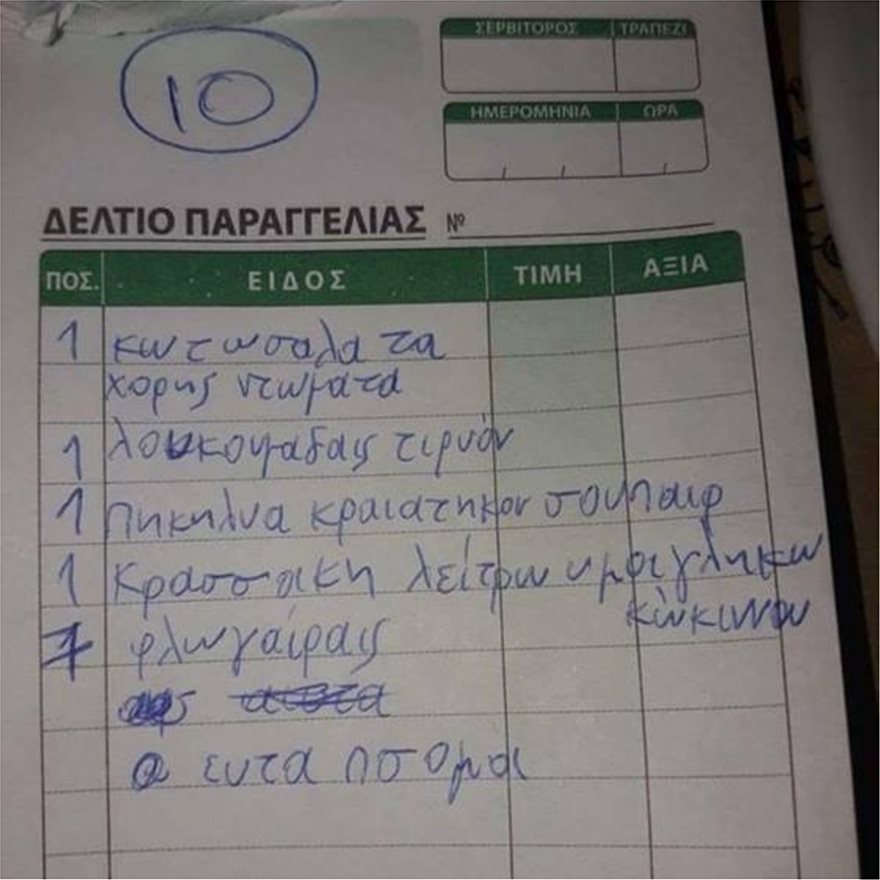 10
ΣΕΡΒΙΤΟΡΟΣ ΤΡΑΠΕΖΙ
ΗΜΕΡΟΜΗΝΙΑ ΩΡΑ
ΔΕΛΤΙΟ ΠΑΡΑΓΓΕΛΙΑΣ №
ΠΟΣ. ΕΙΔΟΣ ΤΙΜΗ ΑΞΙΑ
1 κωτωσαλατα
χορης ντωματα
1 λουκουμαδαις τιρυόν
1 πηκηλυα κραιατηκον σουπαιρ
1 κρασσακη λείτρω υμοιγληκω
κώκινου
1 φλωγαίραις